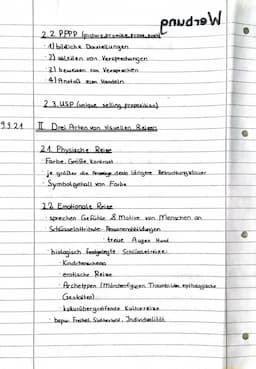 Werbung
2.2. PPPP (picture, promise, prove, push)
1) bildliche Darstellungen
2) ableiten von Versprechungen
3) beweisen von Versprechen
4) Anstoß zum Handeln
2.3. USP (unique selling proposition)
9.9.21 II Drei Arten von visuellen Reizen
2.1. Physische Reize
· Farbe, Größe, Kontrast
· je größer die Anzeige desto längere Betrachtungsdauer
· Symbolgehalt von Farbe
2.2. Emotionale Reize
· sprechen Gefühle & Motive von Menschen an
· Schlüsselattribute: Personenabbildungen
treue Augen Hund
· biologisch festgelegte Schlüsselreize:
· Kindchenschema
· erotische Reize
· Archetypen (Märchenfiguren, Traumbilder, mythologische
Gestalten)
· kulturübergreifende
· bspw. Freiheit, Individualität